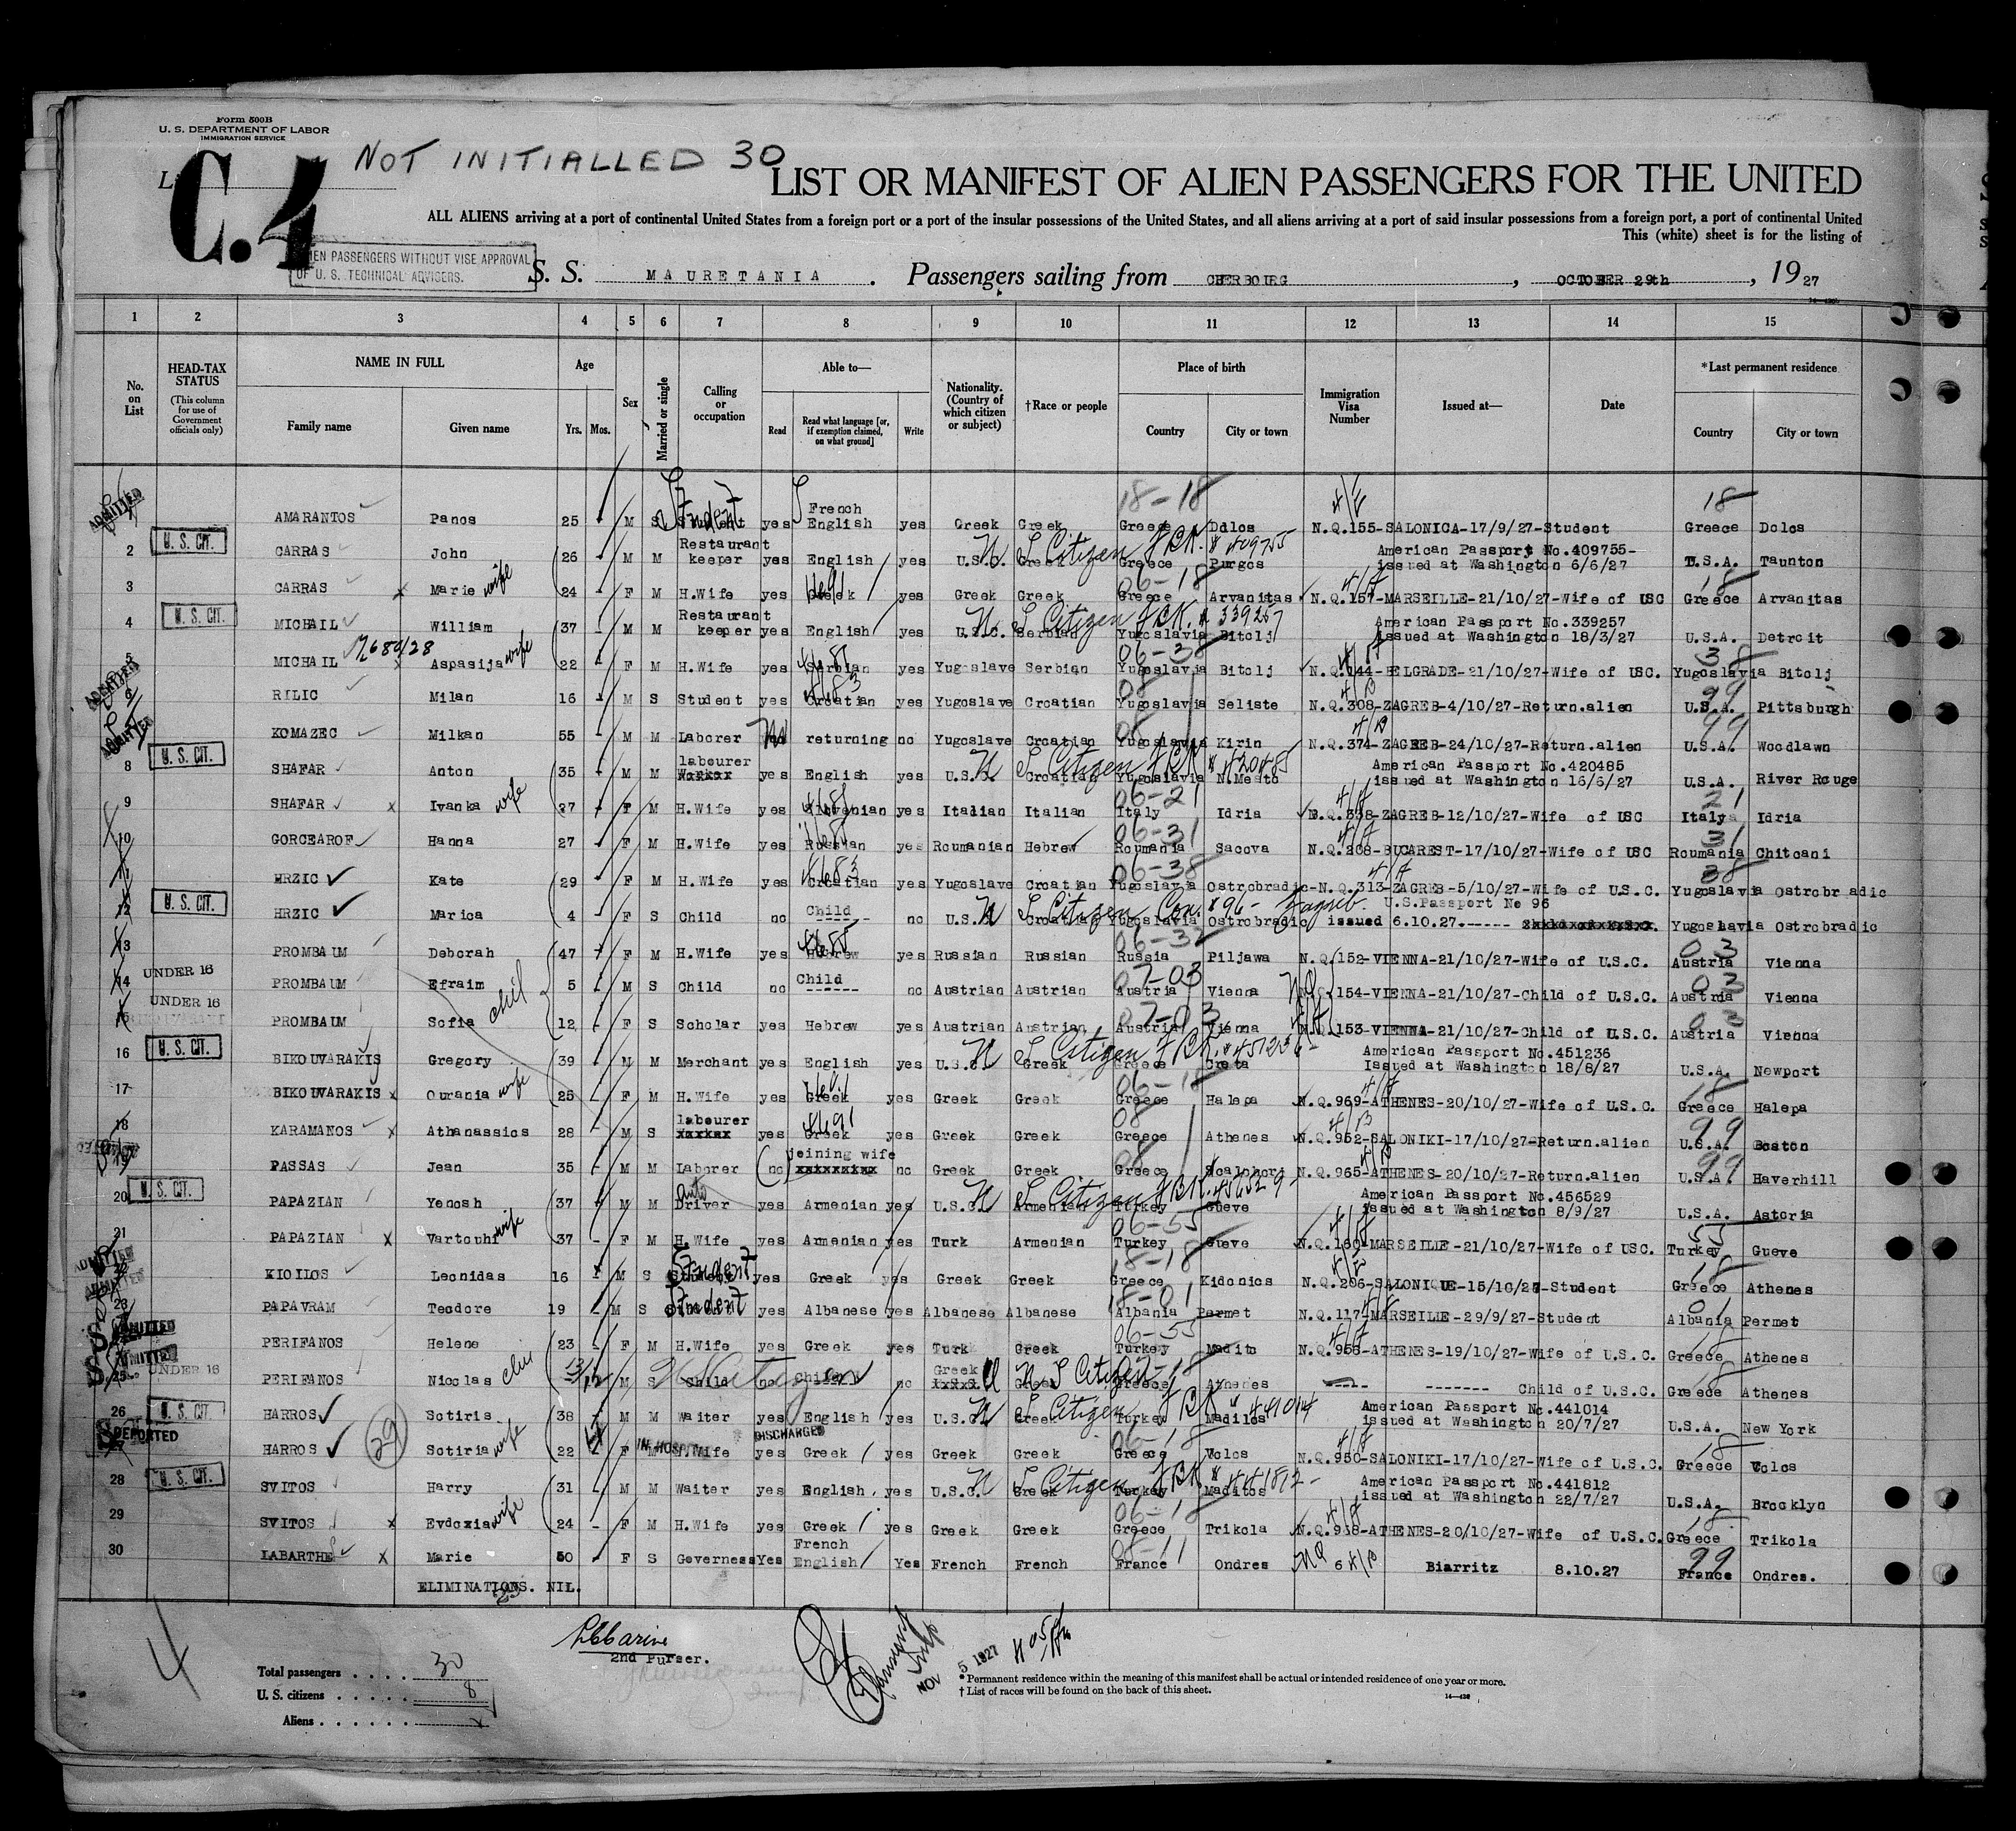 Form 500B
U. S. DEPARTMENT OF LABOR
IMMIGRATION SERVICE
NOT INITIALLED 30
C.4
LIST OR MANIFEST OF ALIEN PASSENGERS FOR THE UNITED
ALL ALIENS arriving at a port of continental United States from a foreign port or a port of the insular possessions of the United States, and all aliens arriving at a port of said insular possessions from a foreign port, a port of continental United
This (white) sheet is for the listing of
PASSENGERS WITHOUT VISE APPROVAL
OF U. S. TECHNICAL ADVISERS.
S. S. MAURETANIA . Passengers sailing from CHERBOURG , OCTOBER 29th , 19 27
1 2 3 4 5 6 7 8 9 10 11 12 13 14 15
No. on List HEAD-TAX STATUS (This column for use of Government officials only) NAME IN FULL Family name Given name Age Yrs. Mos. Sex Married or single Calling or occupation Able to— Read Read what language [or, if exemption claimed, on what ground] Write Nationality. (Country of which citizen or subject) †Race or people Place of birth Country City or town Immigration Visa Number Issued at— Date *Last permanent residence Country City or town
ADMITTED AMARANTOS Panos 25 M S Student yes French English yes Greek Greek Greece Ddlos N.Q.155-SALONICA-17/9/27-Student Greece Dolos
2 U. S. CIT. CARRAS John 26 M M Restaurant keeper yes English yes U.S.C. Greek Greece Purgos American Passport No.409755- issued at Washington 6/6/27 U.S.A. Taunton
3 CARRAS x Marie wife 24 F M H.Wife yes Greek yes Greek Greek Greece Arvanitas N.Q.157-MARSEILLE-21/10/27-Wife of USC Greece Arvanitas
4 U. S. CIT. MICHAIL William 37 M M Restaurant keeper yes English yes U.S.C. Serbian Yugoslavia Bitolj American Passport No.339257 issued at Washington 18/3/27 U.S.A. Detroit
5 MICHAIL x Aspasija wife 22 F M H.Wife yes Serbian yes Yugoslave Serbian Yugoslavia Bitolj N.Q.144-BELGRADE-21/10/27-Wife of USC. Yugoslavia Bitolj
ADMITTED 6 RILIC Milan 16 M S Student yes Croatian yes Yugoslave Croatian Yugoslavia Seliste N.Q.308-ZAGREB-4/10/27-Return.alien U.S.A. Pittsburgh
ADMITTED KOMAZEC Milkan 55 M M Laborer no returning no Yugoslave Croatian Yugoslavia Kirin N.Q.374-ZAGREB-24/10/27-Return.alien U.S.A. Woodlawn
8 U. S. CIT. SHAFAR Anton 35 M M labourer yes English yes U.S.C. Croatian Yugoslavia N.Mesto American Passport No.420485 issued at Washington 16/6/27 U.S.A. River Rouge
9 SHAFAR x Ivanka wife 27 F M H.Wife yes Slovenian yes Italian Italian Italy Idria N.Q.338-ZAGREB-12/10/27-Wife of USC Italy Idria
10 GORCEAROF Hanna 27 F M H.Wife yes Russian yes Roumanian Hebrew Roumania Sacova N.Q.208-BUCAREST-17/10/27-Wife of USC Roumania Chitcani
HRZIC Kate 29 F M H.Wife yes Croatian yes Yugoslave Croatian Yugoslavia Ostrobradic-N.Q.313-ZAGREB-5/10/27-Wife of U.S.C. Yugoslavia Ostrobradic
12 U. S. CIT. HRZIC Marica 4 F S Child no Child ------ no U.S. Croatian Yugoslavia Ostrobradic U.S.Passport No 96 issued 6.10.27.------ Yugoslavia Ostrobradic
13 PROMBAUM Deborah 47 F M H.Wife yes Hebrew yes Russian Russian Russia Piljawa N.Q.152-VIENNA-21/10/27-Wife of U.S.C. Austria Vienna
14 UNDER 16 PROMBAUM Efraim 5 M S Child no Child ------ no Austrian Austrian Austria Vienna N.Q.154-VIENNA-21/10/27-Child of U.S.C. Austria Vienna
15 UNDER 16 PROMBAUM Sofia 12 F S Scholar yes Hebrew yes Austrian Austrian Austria Vienna 153-VIENNA-21/10/27-Child of U.S.C. Austria Vienna
16 U. S. CIT. BIKOUVARAKIS Gregory 39 M M Merchant yes English yes U.S.C. Greek Greece Creta American Passport No.451236 Issued at Washington 18/8/27 U.S.A. Newport
17 BIKOUVARAKIS x Ourania wife 25 F M H.Wife yes Greek yes Greek Greek Greece Halepa N.Q.969-ATHENES-20/10/27-Wife of U.S.C. Greece Halepa
18 KARAMANOS x Athanassios 28 M S labourer yes Greek yes Greek Greek Greece Athenes N.Q.952-SALONIKI-17/10/27-Return.alien U.S.A. Boston
19 PASSAS Jean 35 M M Laborer (no) joining wife no Greek Greek Greece N.Q.965-ATHENES-20/10/27-Return.alien U.S.A. Haverhill
20 U. S. CIT. PAPAZIAN Yenosh 37 M M Auto Driver yes Armenian yes U.S.C. Armenian Turkey Gueve American Passport No.456529 issued at Washington 8/9/27 U.S.A. Astoria
21 PAPAZIAN x Vartouhi wife 37 F M H.Wife yes Armenian yes Turk Armenian Turkey Gueve N.Q.160-MARSEILLE-21/10/27-Wife of USC. Turkey Gueve
ADMITTED KIOILOS Leonidas 16 M S Student yes Greek yes Greek Greek Greece Kidonics N.Q.206-SALONIQUE-15/10/27-Student Greece Athenes
23 PAPAVRAM Teodore 19 M S Student yes Albanese yes Albanese Albanese Albania Permet N.Q.117-MARSEILLE-29/9/27-Student Albania Permet
ADMITTED PERIFANOS Helene 23 F M H.Wife yes Greek yes Turk Greek Turkey Madito N.Q.956-ATHENES-19/10/27-Wife of U.S.C. Greece Athenes
ADMITTED 25 UNDER 16 PERIFANOS Nicolas 13/12 M S Child no Child no Greek U S Citizen Greek Greece Athenes ------- Child of U.S.C. Greece Athenes
26 U. S. CIT. HARROS Sotiris 38 M M Waiter yes English yes U.S. Greek Turkey Madilos American Passport No.441014 issued at Washington 20/7/27 U.S.A. New York
DEPORTED 27 HARROS 29 Sotiria wife 22 F M IN HOSPITAL H.Wife DISCHARGED yes Greek yes Greek Greek Greece Volos N.Q.950-SALONIKI-17/10/27-Wife of U.S.C. Greece Volos
28 U. S. CIT. SVITOS Harry 31 M M Waiter yes English yes U.S.C. Greek Turkey Maditos American Passport No.441812 issued at Washington 22/7/27 U.S.A. Brooklyn
29 SVITOS x Evdoxia wife 24 F M H.Wife yes Greek yes Greek Greek Greece Trikola N.Q.958-ATHENES-20/10/27-Wife of U.S.C. Greece Trikola
30 LABARTHE x Marie 50 F S Governess Yes French English Yes French French France Ondres NQ 6 Biarritz 8.10.27 France Ondres.
ELIMINATIONS. NIL.
2nd Purser.
NOV 5 1927
Total passengers . . . . 30
U. S. citizens . . . . . 8
Aliens . . . . . .
4
*Permanent residence within the meaning of this manifest shall be actual or intended residence of one year or more.
†List of races will be found on the back of this sheet.